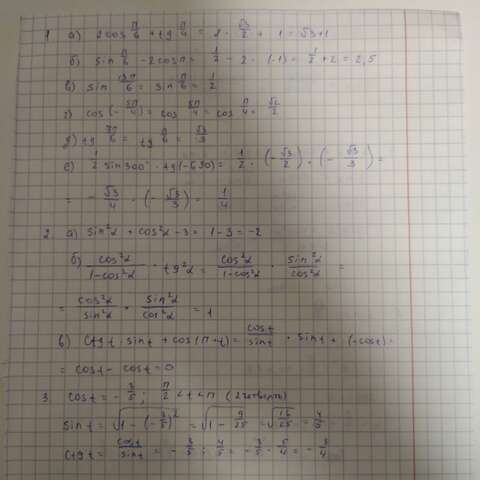 1 а) 2cos π/6 + tg π/4 = 2 · √3/2 + 1 = √3+1
б) sin π/6 - 2cosπ = 1/2 - 2 · (-1) = 1/2 + 2 = 2,5
в) sin 13π/6 = sin π/6 = 1/2
г) cos(- π/4) = cos π/4 = cos π/4 = √2/2
д) tg 7π/6 = tg π/6 = √3/3
е) 1/2 sin300° · tg(-690) = 1/2 · (- √3/2) · (- √3/3) =
= - √3/4 · (- √3/3) = 1/4
2. а) sin²α + cos²α - 3 = 1 - 3 = -2
б) cos²α/1-cos²α · tg²α = cos²α/1-cos²α · sin²α/cos²α =
= cos²α/sin²α · sin²α/cos²α = 1
в) ctg t · sin t + cos(π+t) = cos t/sin t · sin t + (-cos t) =
= cos t - cos t = 0
3. cos t = - 3/5 ; π/2 < t < π (2 четверть)
sin t = √1 - (- 3/5)² = √1 - 9/25 = √16/25 = 4/5
ctg t = cos t/sin t = - 3/5 : 4/5 = - 3/5 · 5/4 = - 3/4